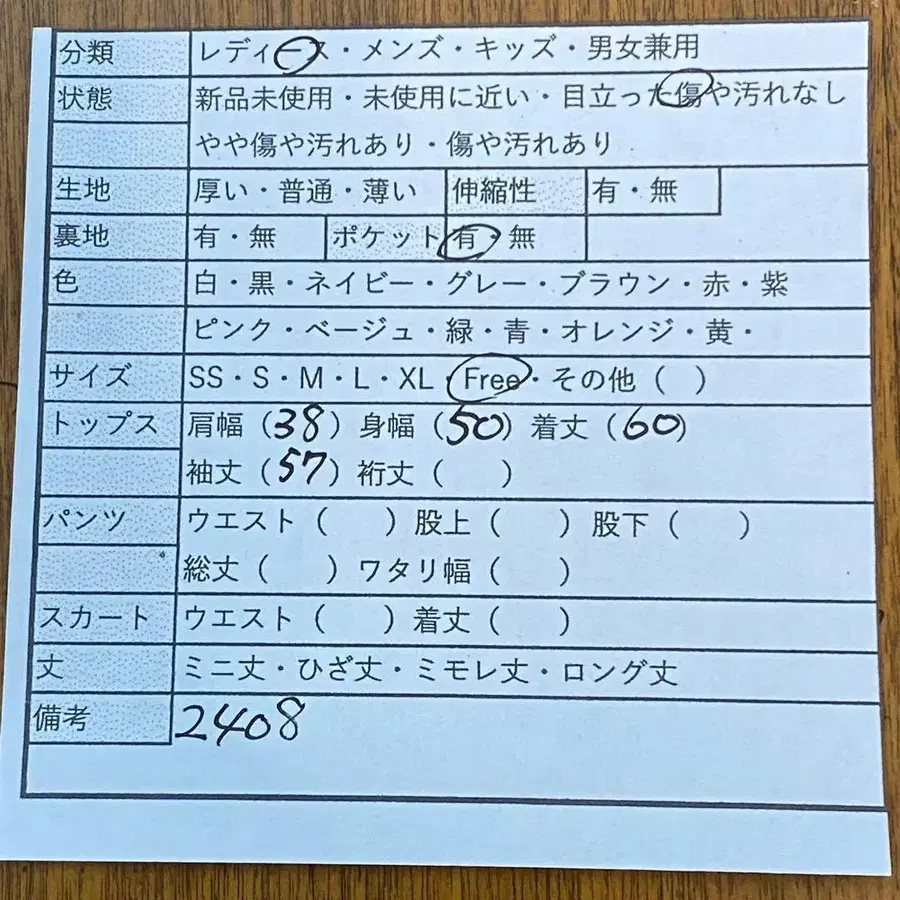 分類 レディース・メンズ・キッズ・男女兼用
状態 新品未使用・未使用に近い・目立った傷や汚れなし
やや傷や汚れあり・傷や汚れあり
生地 厚い・普通・薄い 伸縮性 有・無
裏地 有・無 ポケット 有・無
色 白・黒・ネイビー・グレー・ブラウン・赤・紫
ピンク・ベージュ・緑・青・オレンジ・黄・
サイズ SS・S・M・L・XL・Free・その他（ ）
トップス 肩幅（38）身幅（50）着丈（60）
袖丈（57）裄丈（ ）
パンツ ウエスト（ ）股上（ ）股下（ ）
総丈（ ）ワタリ幅（ ）
スカート ウエスト（ ）着丈（ ）
丈 ミニ丈・ひざ丈・ミモレ丈・ロング丈
備考 2408